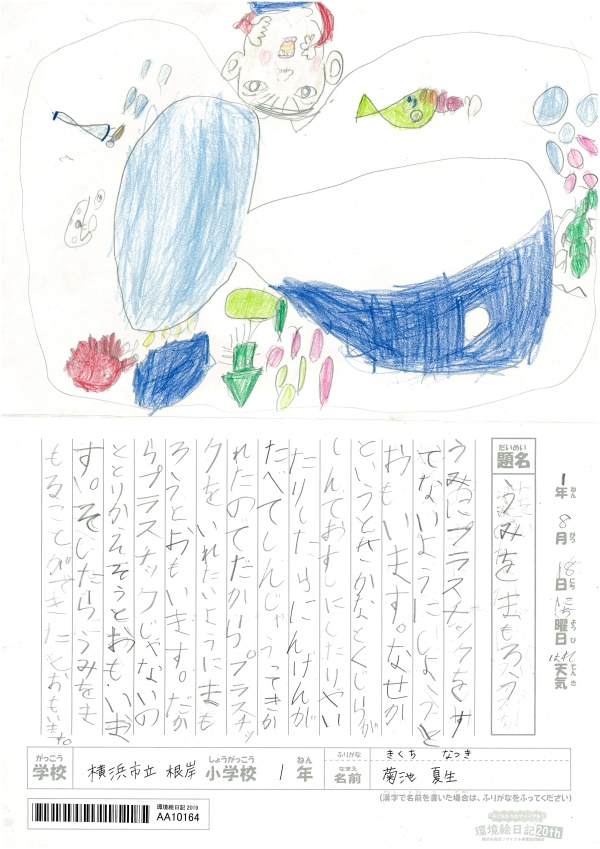 1年 8月 18日 にち曜日 はれ天気
ねん がつ にち ようび てんき
だいめい
題名 うみをまもろう
うみにプラスチックをす
てないようにしようと
おもいます。なせか
というとさかなとくじらが
しんておすしにしたりやい
たりしたらにんげんが
たべてしんじゃうってきか
れたのてだからプラスチッ
クをいれたいようにまも
ろうとおもいます。だか
らプラスチックじゃないの
ととりかそそうとおもいま
す。そしたらうみをま
もることができたとおもいます。
がっこう しょうがっこう ねん
学校 横浜市立 根岸 小学校 1年
ふりがな きくち なつき
なまえ
名前 菊池 夏生
(漢字で名前を書いた場合は、ふりがなをふってください)
環境絵日記 2019
AA10164
環境絵日記 20th